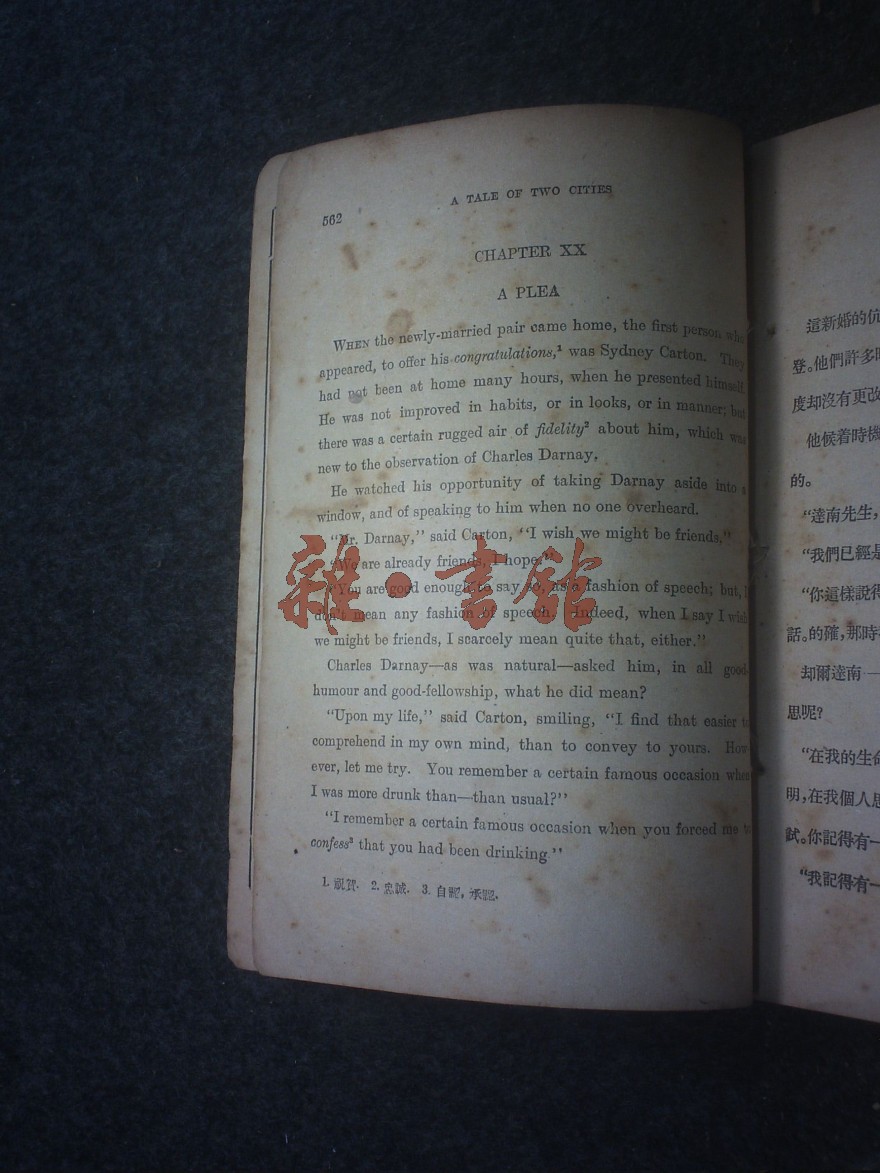 562
A TALE OF TWO CITIES
CHAPTER XX
A PLEA
WHEN the newly-married pair came home, the first person who
appeared, to offer his congratulations,¹ was Sydney Carton. They
had not been at home many hours, when he presented himself.
He was not improved in habits, or in looks, or in manner; but
there was a certain rugged air of fidelity² about him, which was
new to the observation of Charles Darnay.
He watched his opportunity of taking Darnay aside into a
window, and of speaking to him when no one overheard.
"Mr. Darnay," said Carton, "I wish we might be friends."
"We are already friends, I hope."
"You are good enough to say so, as a fashion of speech; but, I
don't mean any fashion of speech. Indeed, when I say I wish
we might be friends, I scarcely mean quite that, either."
Charles Darnay—as was natural—asked him, in all good-
humour and good-fellowship, what he did mean?
"Upon my life," said Carton, smiling, "I find that easier to
comprehend in my own mind, than to convey to yours. How-
ever, let me try. You remember a certain famous occasion when
I was more drunk than—than usual?"
"I remember a certain famous occasion when you forced me to
confess³ that you had been drinking."
1. 祝賀. 2. 忠誠. 3. 自認, 承認.
雜·書館
這新婚的伉
登。他們許多時
度却沒有更改
他候着時機
的。
"達南先生,
"我們已經是
"你這樣說得
話。的確,那時
却爾達南—
思呢?
"在我的生命
明,在我個人思
試。你記得有一
"我記得有一